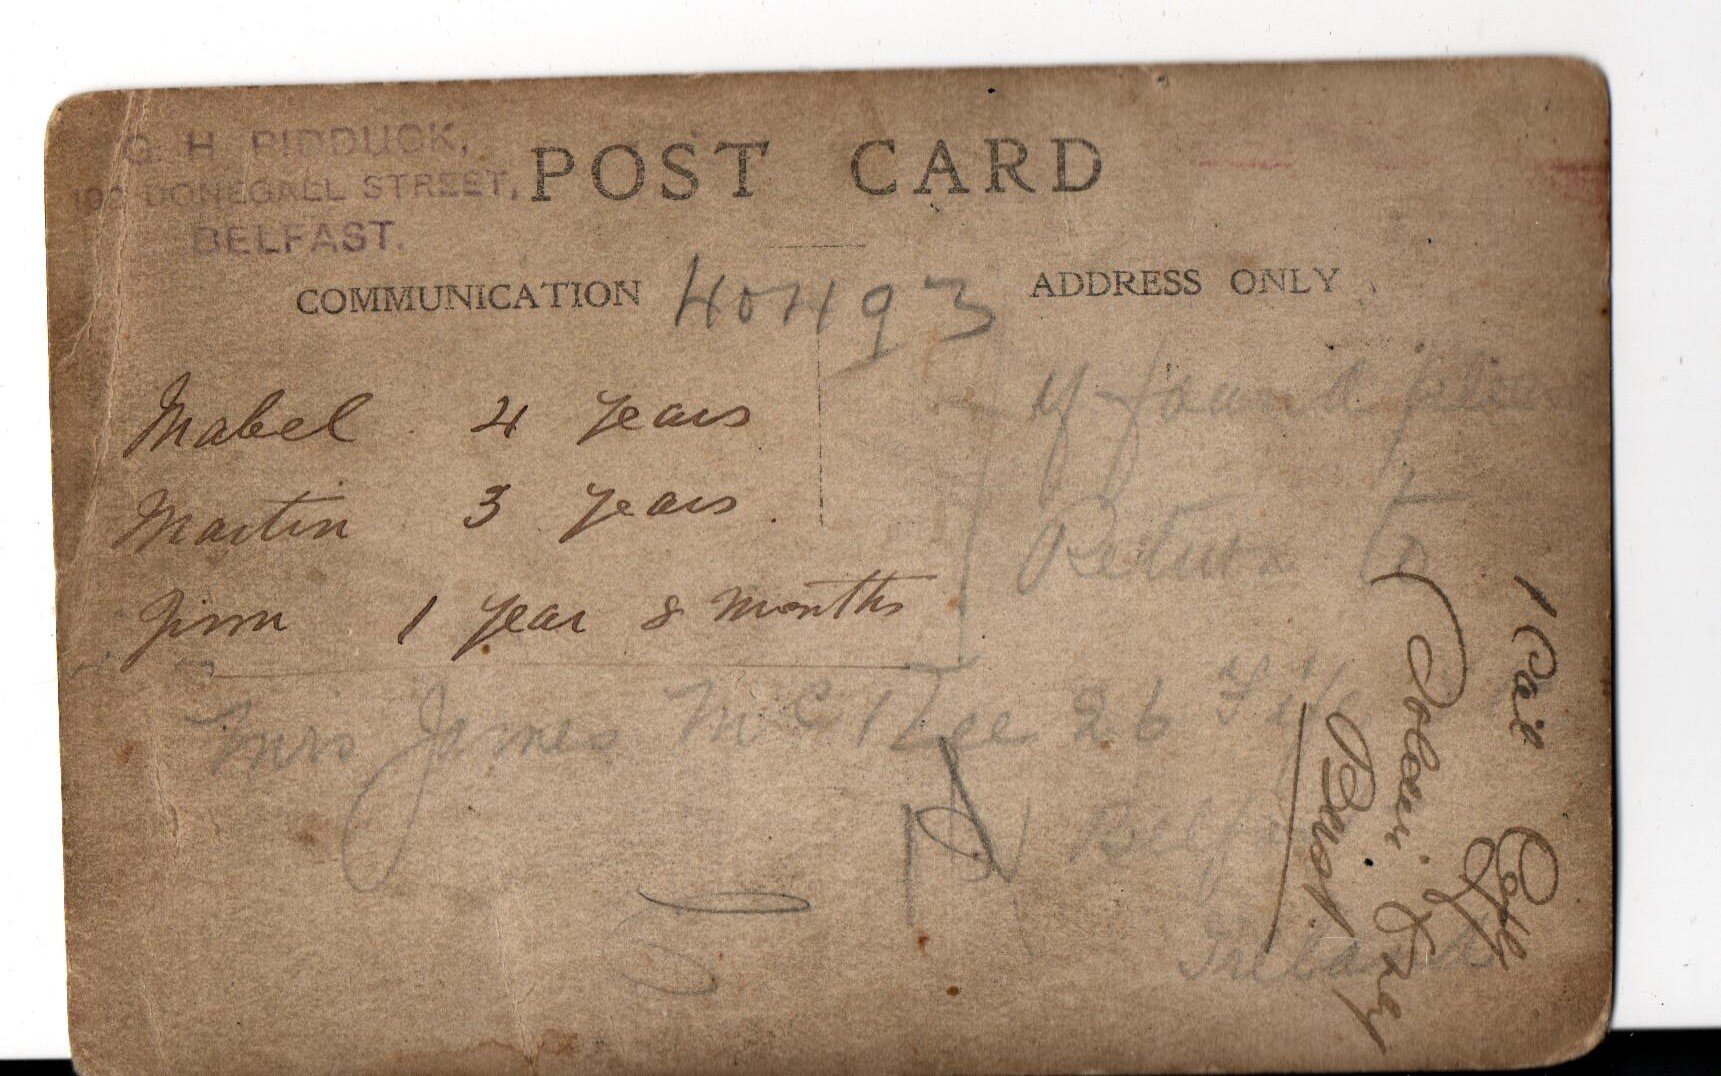 G. H. PIDDUCK,
DONEGALL STREET,
BELFAST.
POST CARD
COMMUNICATION
40493
ADDRESS ONLY
Mabel 4 years
Martin 3 years
Jim 1 year 8 months
If found please
Return to
Mrs James McKee 26
Belfast
Ireland
1 Cait
Colour Grey
Bust